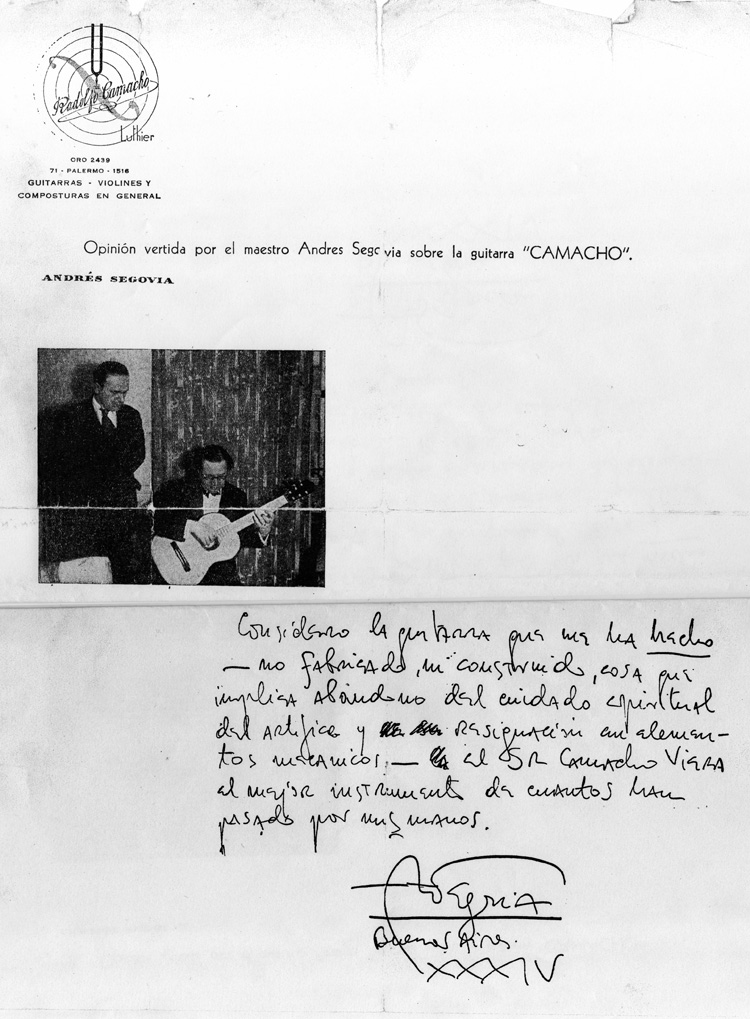 Rodolfo Camacho
Luthier
ORO 2439
71 - PALERMO - 1516
GUITARRAS - VIOLINES Y
COMPOSTURAS EN GENERAL
Opinión vertida por el maestro Andres Segovia sobre la guitarra "CAMACHO".
ANDRÉS SEGOVIA
Considero la guitarra que me ha hecho
— no fabricado, ni construido, cosa que
implica abandono del cuidado espiritual
del artífice y resignación en elemen-
tos mecanicos. — el SR Camacho Viera
el mejor instrumento de cuantos han
pasado por mis manos.
Segovia
Buenos Aires.
XXXIV